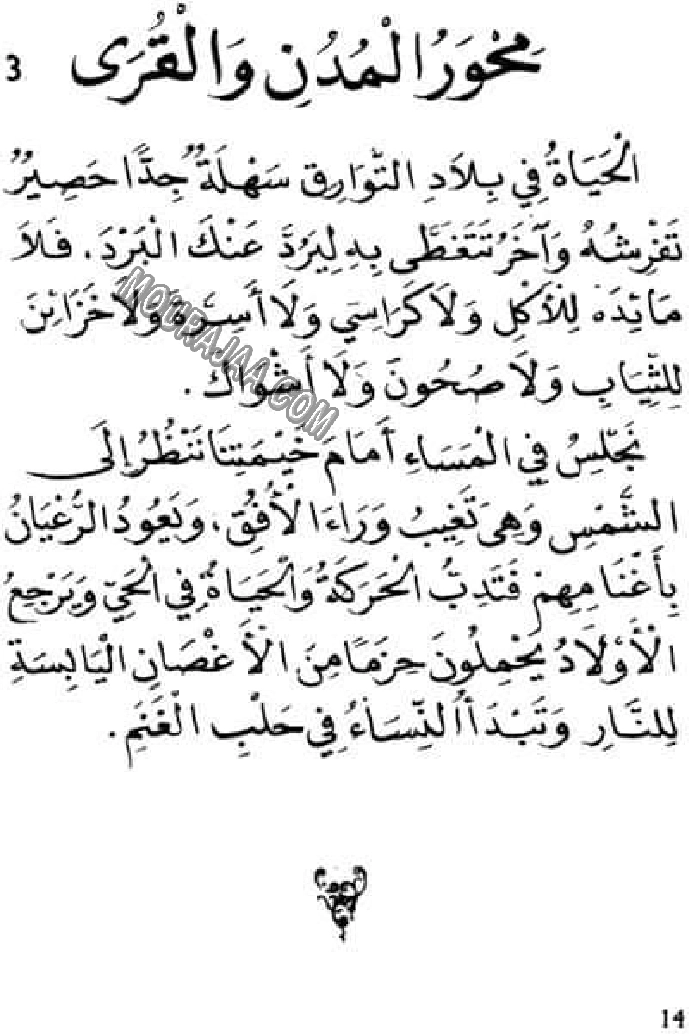 3 مَحْوَرُ الْمُدُنِ وَالْقُرَى
الْحَيَاةُ فِي بِلَادِ التَّوَارِقِ سَهْلَةٌ جِدًّا حَصِيرٌ
تَفْرِشُهُ وَآخَرُ تَتَغَطَّى بِهِ لِيَرُدَّ عَنْكَ الْبَرْدَ. فَلَا
مَائِدَةَ لِلْأَكْلِ وَلَا كَرَاسِي وَلَا أَسِرَّةَ وَلَا خَزَائِنَ
لِلثِّيَابِ وَلَا صُحُونَ وَلَا أَشْوَاكَ.
نَجْلِسُ فِي الْمَسَاءِ أَمَامَ خَيْمَتِنَا نَنْظُرُ إِلَى
الشَّمْسِ وَهِيَ تَغِيبُ وَرَاءَ الْأُفُقِ، وَيَعُودُ الرُّعْيَانُ
بِأَغْنَامِهِمْ فَتَدِبُّ الْحَرَكَةُ وَالْحَيَاةُ فِي الْحَيِّ وَيَرْجِعُ
الْأَوْلَادُ يَحْمِلُونَ حِزَمًا مِنَ الْأَغْصَانِ الْيَابِسَةِ
لِلنَّارِ وَتَبْدَأُ النِّسَاءُ فِي حَلْبِ الْغَنَمِ.
MOURAJAA.COM
14